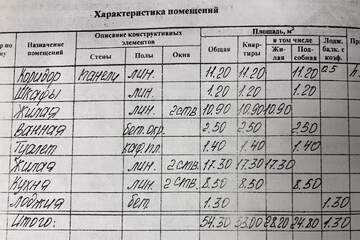 Характеристика помещений
Назначение помещений Описание конструктивных элементов Площадь, м²
Стены Полы Окна Общая Квартиры в том числе Жилая Подсобная Лодж. балк. с коэф.
Коридор панели лин. 11.20 11.20 11.20 0.5
Шкафы лин. 1.20 1.20 1.20
Жилая лин. 2 ств 10.90 10.90 10.90
Ванная бет.окр. 2.50 2.50 2.50
Туалет каф.пл. 1.40 1.40 1.40
Жилая лин. 2 ств. 17.30 17.30 17.30
Кухня лин. 2 ств. 8.50 8.50 8.50
Лоджия бет. 1.30 1.30
Итого: 54.30 53.00 28.20 24.80 1.30